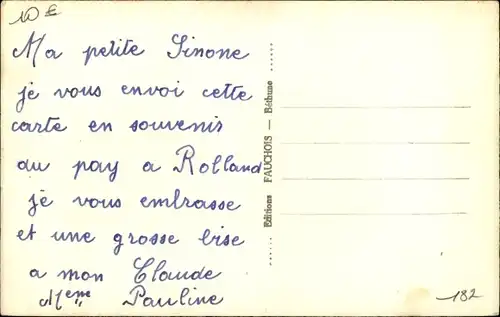 10 €
Ma petite Simone
je vous envoi cette
carte en souvenir
du pay a Rolland
je vous embrasse
et une grosse bise
a mon Claude
Meme Pauline
Editions FAUCHOIS — Béthune
182